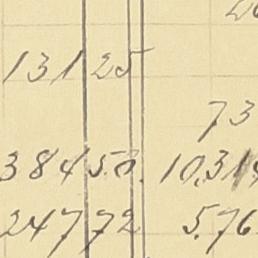 131 25
73
384 50. 10,31
247 72 5.76